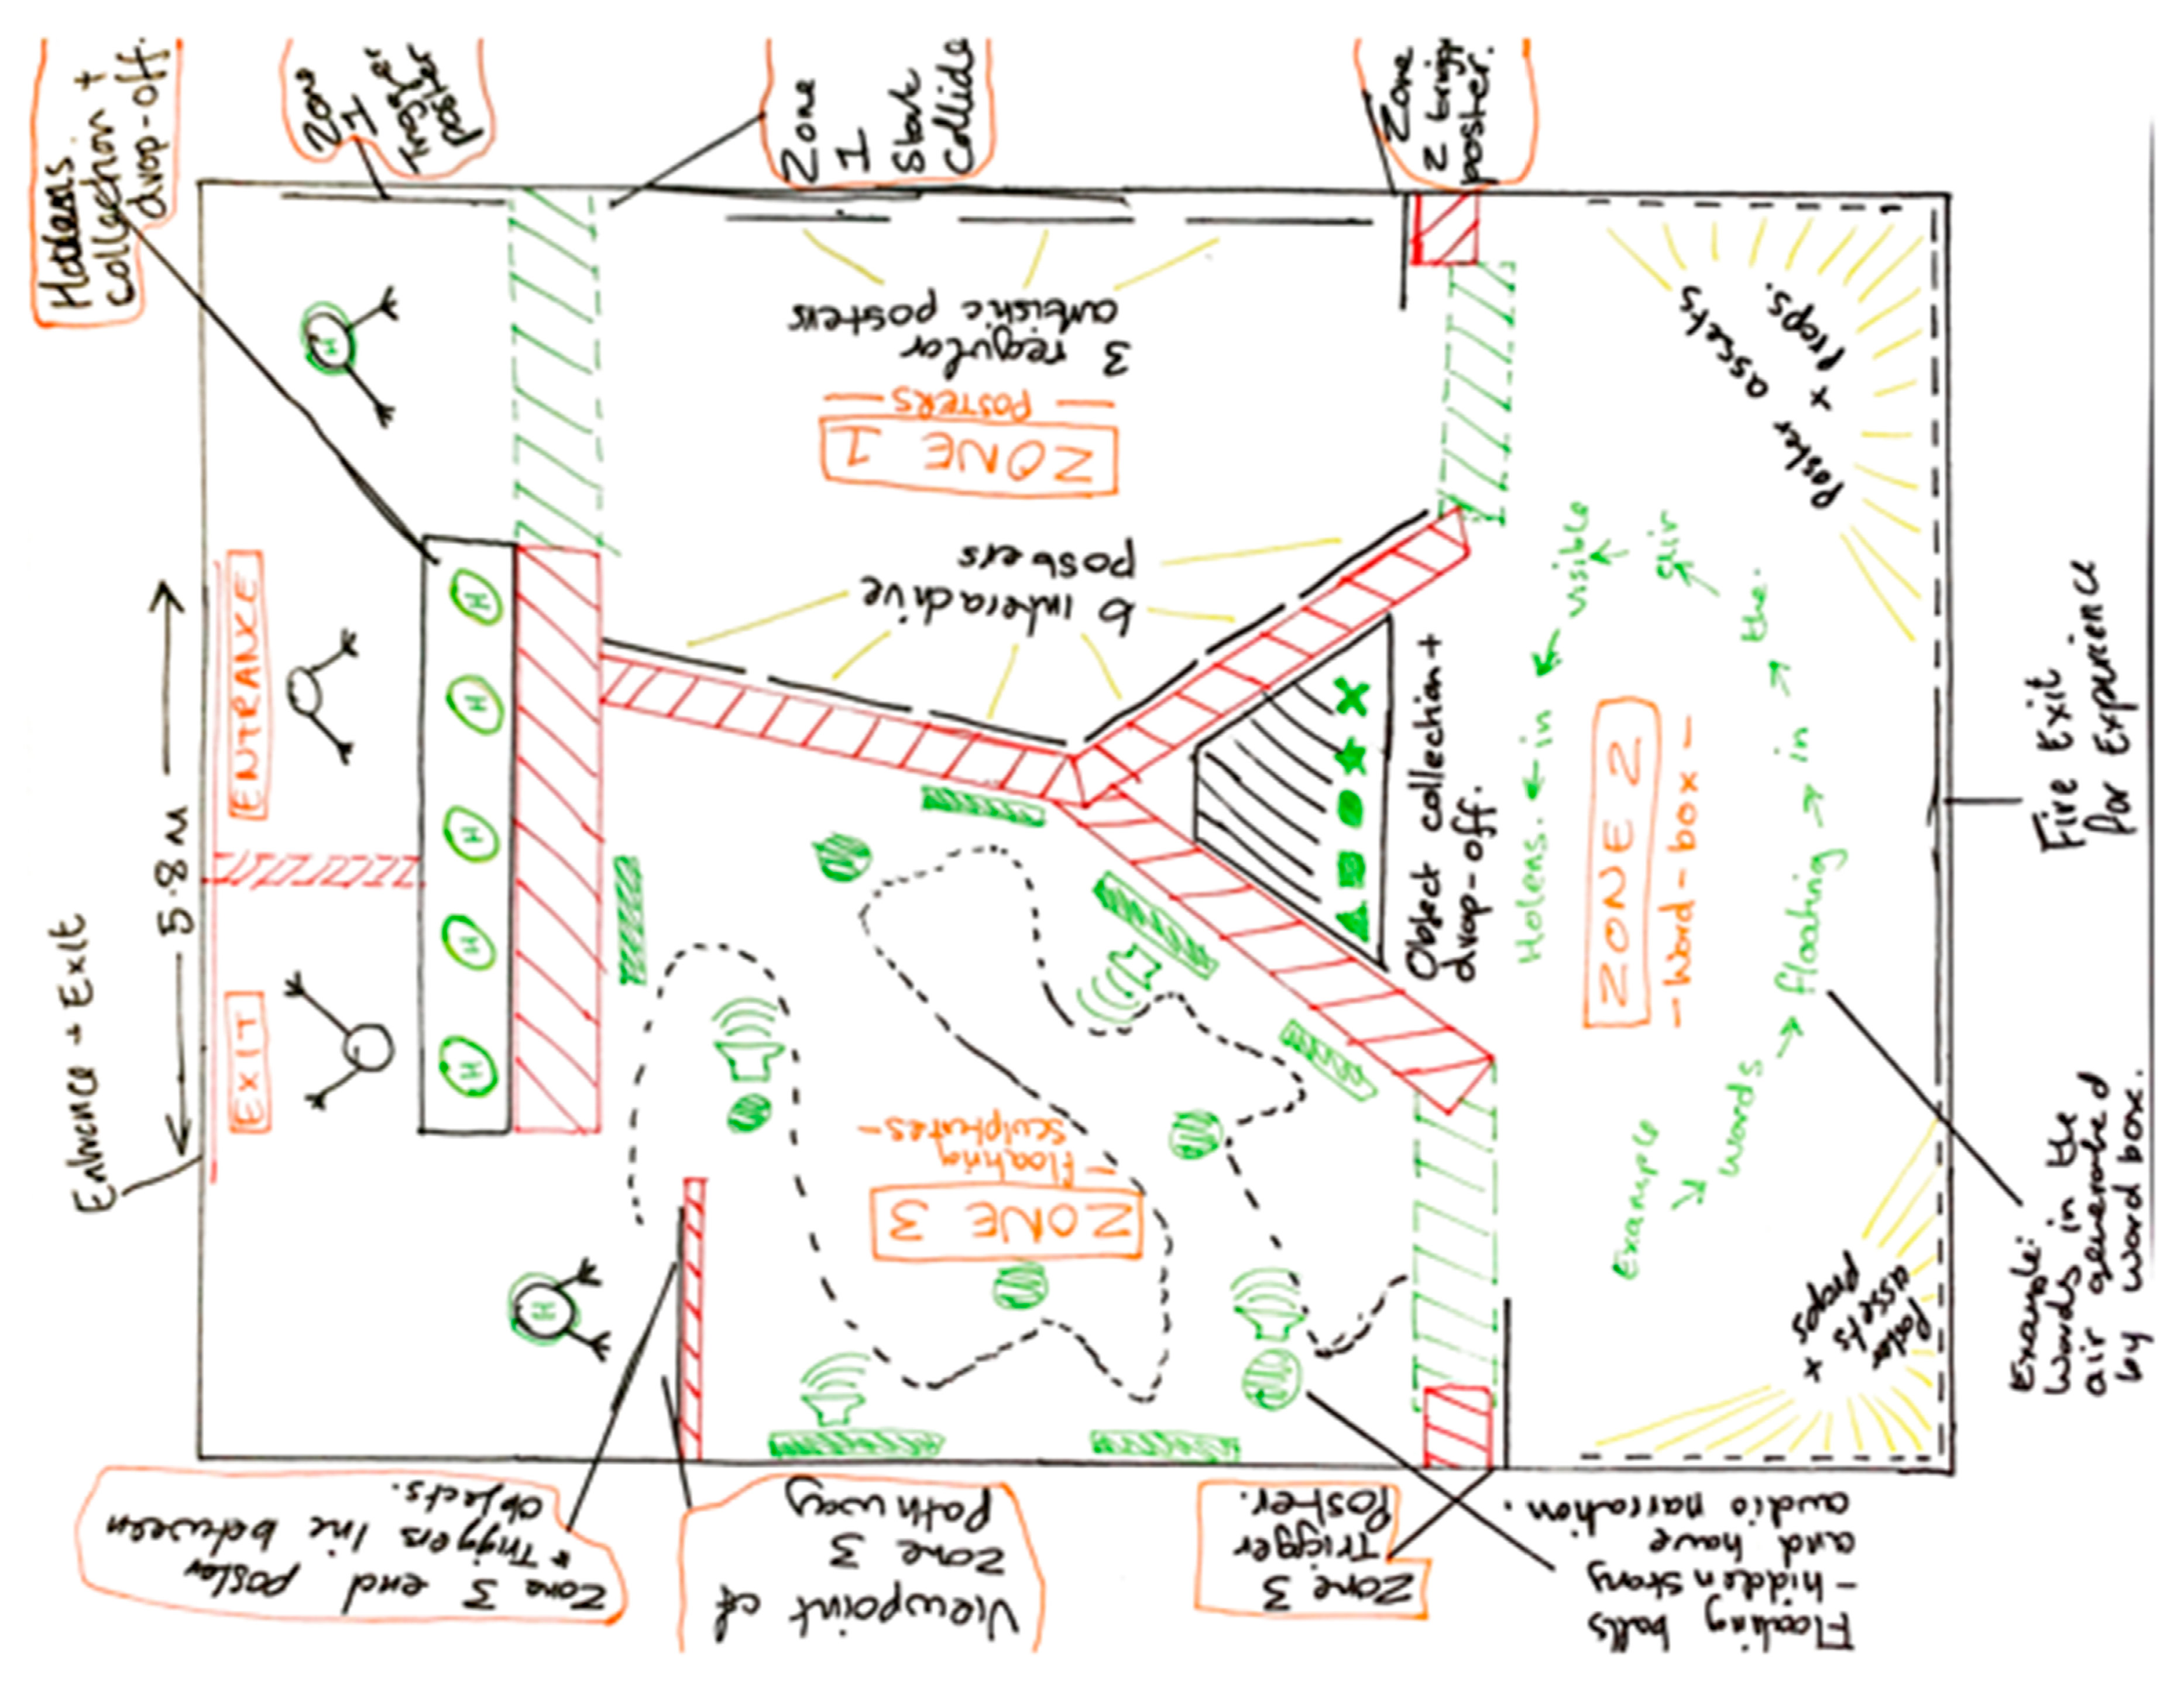 Hololens
collection +
drop-off.
Zone
1
Trigger
poster
Zone
1
Start
Collide
Zone
2 trigg
poster.
3 regular
artistic posters
ZONE 1
— POSTERS —
6 interactive
posters
Poster assets
x Props.
ENTRANCE
EXIT
5.8 M
Entrance + Exit
H
H
H
H
H
H
H
Object collection +
drop-off.
ZONE 2
- Word - box -
Example
words
floating
in
the
air
visible
in
Holens.
Fire Exit
for Experience
Example:
Words in the
air generated
by word box.
Poster
assets
x
Props
ZONE 3
- Floating
sculptures -
Zone 3 end poster
* Triggers line between
objects.
Viewpoint of
Zone 3
pathway
Zone 3
Trigger
Poster.
Floating balls
- hidden story
and have
audio narration.